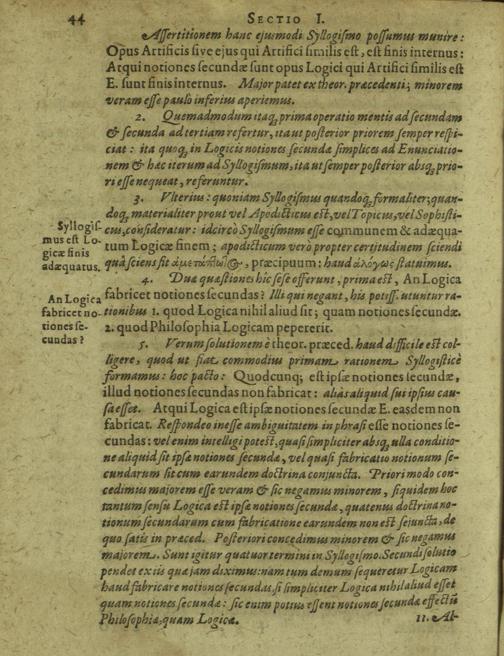 44 SECTIO I.
Assertitionem hanc ejusmodi Syllogismo possumus munire:
Opus Artificis sive ejus qui Artifici similis est, est finis internus:
Atqui notiones secundæ sunt opus Logici qui Artifici similis est
E. sunt finis internus. Major patet ex theor. præcedenti; minorem
veram esse paulò inferius aperiemus.
2. Quemadmodum itaq; prima operatio mentis ad secundam
& secunda ad tertiam refertur, ita ut posterior priorem semper respi-
ciat: ita quoq; in Logicis notiones secundæ simplices ad Enunciatio-
nem & hæc iterum ad Syllogismum, ita ut semper posterior absq; prio-
ri esse nequeat, referuntur.
3. Vlterius: quoniam Syllogismus quandoq; formaliter; quan-
doq; materialiter prout vel Apodicticus est, vel Topicus, vel Sophisti-
cus, consideratur: idcircò Syllogismum esse communem & adæqua-
tum Logicæ finem; apodicticum verò propter certitudinem sciendi
quâ sciens fit ἀμετάπτωτος, præcipuum: haud ἀλόγως statuimus.
Syllogis-
mus est Lo-
gicæ finis
adæquatus.
4. Duæ quæstiones hic sese offerunt, prima est, An Logica
fabricet notiones secundas? Illi qui negant, his potiss. utuntur ra-
tionibus 1. quod Logica nihil aliud sit; quam notiones secundæ.
2. quod Philosophia Logicam pepererit.
An Logica
fabricet no-
tiones se-
cundas?
5. Verum solutionem è theor. præced. haud difficile est col-
ligere, quod ut fiat commodius primam rationem Syllogisticè
formamus: hoc pacto: Quodcunq; est ipsæ notiones secundæ,
illud notiones secundas non fabricat: alias aliquid sui ipsius cau-
sa esset. Atqui Logica est ipsæ notiones secundæ E. easdem non
fabricat. Respondeo inesse ambiguitatem in phrasi esse notiones se-
cundas: vel enim intelligi potest, quasi simpliciter absq; ulla conditio-
ne aliquid sit ipsæ notiones secundæ, vel quasi fabricatio notionum se-
cundarum sit cum earundem doctrina conjuncta. Priori modo con-
cedimus majorem esse veram & sic negamus minorem, siquidem hoc
tantum sensu Logica est ipsæ notiones secundæ, quatenus doctrina no-
tionum secundarum cum fabricatione earundem non est sejuncta, de
quo satis in præced. Posteriori concedimus minorem & sic negamus
majorem. Sunt igitur quatuor termini in Syllogismo. Secundi solutio
pendet ex iis quæ jam diximus: nam tum demum sequeretur Logicam
haud fabricare notiones secundas, si simpliciter Logica nihil aliud esset
quam notiones secundæ: sic enim potius essent notiones secundæ effectū
Philosophiæ, quam Logicæ. 11. Al-